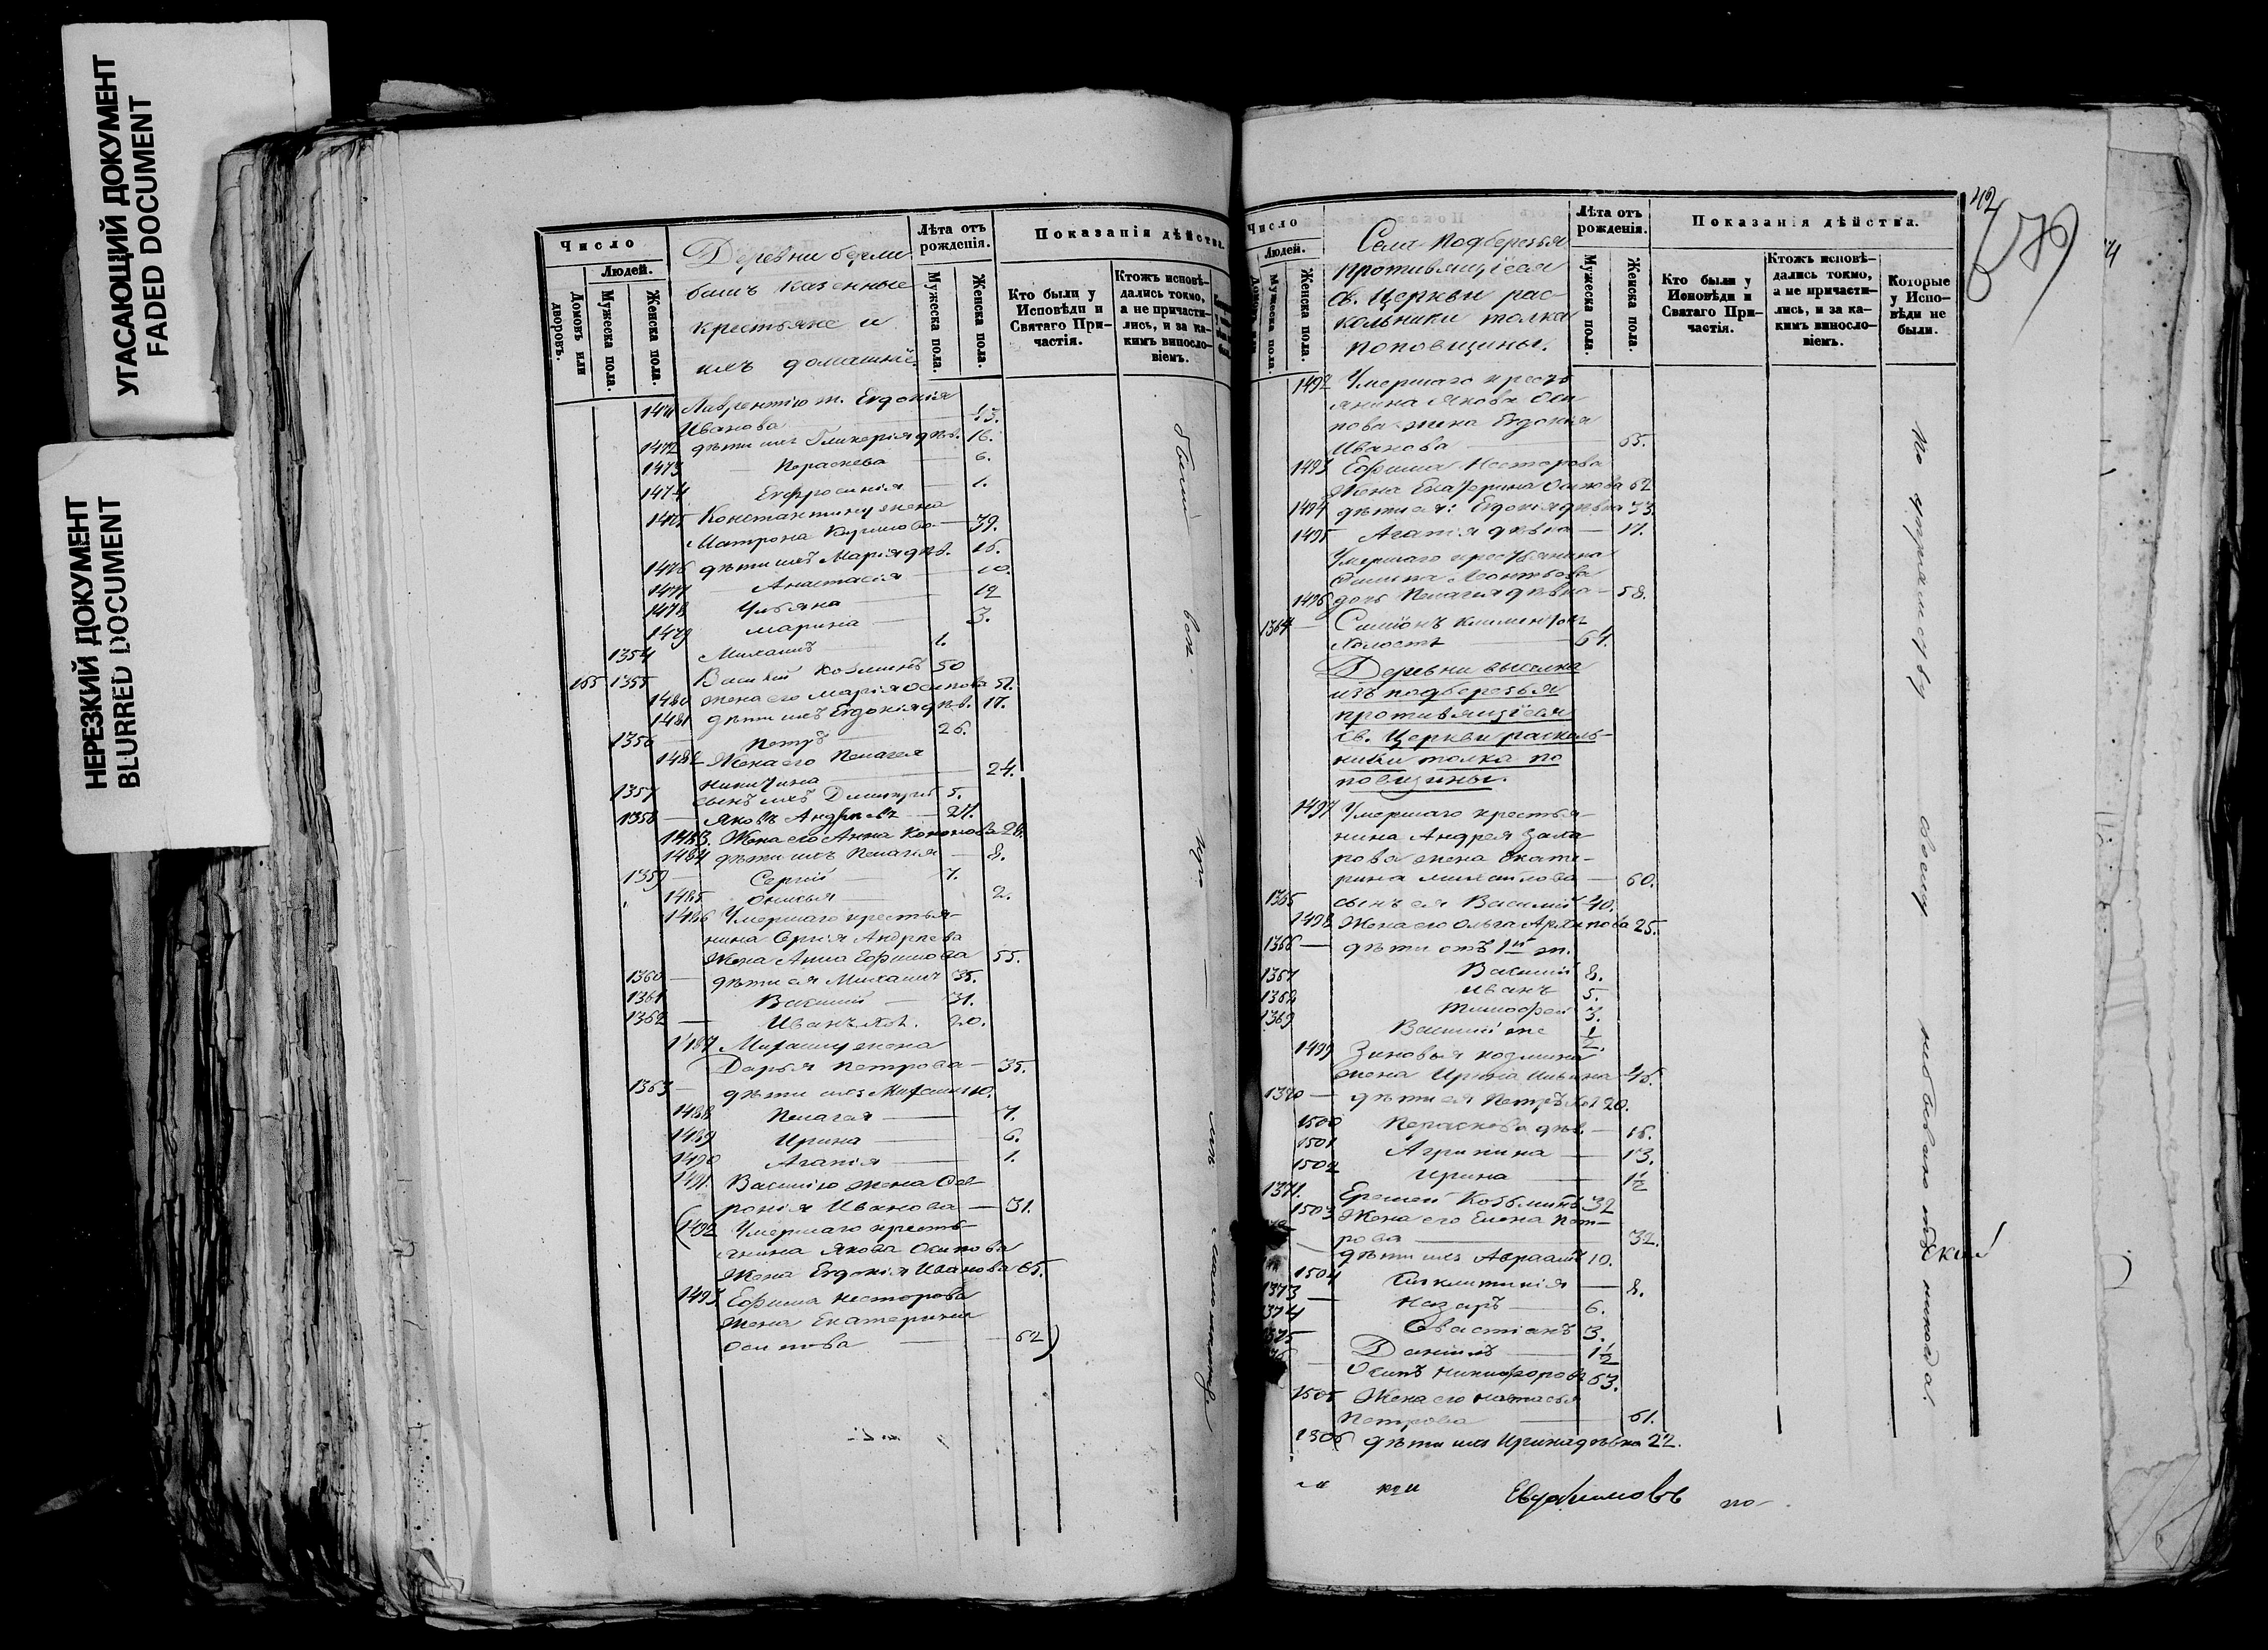 УГАСАЮЩИЙ ДОКУМЕНТ
FADED DOCUMENT
НЕРЕЗКИЙ ДОКУМЕНТ
BLURRED DOCUMENT
Число
Людей.
Домовъ или дворовъ.
Мужеска пола.
Женска пола.
Деревни
казенные
крестьяне и
ихъ домашніе.
Лѣта отъ рожденія.
Мужеска пола.
Женска пола.
Показанія дѣйства.
Кто были у Исповѣди и Святаго Причастія.
Ктожъ исповѣдались токмо, а не причастились, и за какимъ винословіемъ.
1471 Лаврентію ж. Евдокія
Иванова 43.
1472 дѣти ихъ Гликерія дѣв. 16.
1473 Пораскева 6.
1474 Евфросинія 1.
1475 Константину жена
Матрона 39.
1476 дѣти ихъ Марія дѣв. 16.
1477 Анастасія 10.
1478 Ульяна 12
1479 Марина 3.
1354 Михаилъ 1.
165 1355 Василій Козминъ 50
1480 жена его Марія Осипова 51.
1481 дѣти ихъ Евдокія дѣв. 17.
1356 Петръ 26.
1482 Жена его Пелагея
Никитина 24.
1357 сынъ ихъ Димитрій 5.
1358 Яковъ Андреевъ 27.
1483. Жена его Анна Кононова 28.
1484 дѣти ихъ Пелагія 8.
1359 Сергій 7.
1485 2.
1486 Умершаго крестья-
нина Сергія Андреева
Жена Анна Ефимова 55.
1360 дѣти ея Михаилъ 35.
1361 Василій 31.
1362 Иванъ хол. 20.
1487 Михаилу жена
Дарья Петрова 35.
1363 дѣти ихъ Михаилъ 10.
1488 Пелагея 7.
1489 Ирина 6.
1490 Агапія 1.
1491. Василію жена Фев-
ронія Иванова 31.
(1492 Умершаго кресть-
янина Якова Осипова
Жена Евдокія Иванова 65.
1493. Ефима Нестерова
Жена Екатерина
Осипова 62)
Число
Людей.
Мужеска пола.
Женска пола.
Села Подберезья
противящіеся
Св. Церкви рас-
кольники толка
поповщины.
Лѣта отъ рожденія.
Мужеска пола.
Женска пола.
Показанія дѣйства.
Кто были у Исповѣди и Святаго Причастія.
Ктожъ исповѣдались токмо, а не причастились, и за какимъ винословіемъ.
Которые у Исповѣди не были.
42
1492 Умершаго кресть
янина Якова Оси
пова жена Евдокія
Иванова 65.
1493 Ефима Нестерова
Жена Екатерина Осипова 62
1494 дѣти ея: Евдокія дѣвка 33.
1495 Агапія дѣвка 17.
Умершаго крестьянина
Леонтьева
1496 дочь Пелагея дѣвка 58.
1364 Симіонъ Климентовъ
холостъ 64.
Деревни выселка
изъ подберезья
противящіеся
Св. Церкви расколь-
ники толка по
повщины.
1497 Умершаго крестья-
нина Андрея Заха
рова жена Екате-
рина Михайлова 60.
1365 сынъ ея Василій 40.
1498 Жена его Ольга Архипова 25.
1366 дѣти отъ 1й ж.
1367 Василій 8.
1368 Иванъ 5.
1369 Тимофей 3.
Василій же 1/2.
1499 Зиновья Козмина
жена Ирина Ильина 45.
1370 дѣти ея Петръ хол 20.
1500 Пераскова дѣв. 16.
1501 Агрипина 13.
1502 Ирина 1 1/2
1371. Еремей Козьминъ 32
1503 Жена его Елена Пет-
рова 32.
дѣти ихъ Авраамъ 10.
1504 Синклитикія 8.
1373 Назаръ 6.
1374 Савастіанъ 3.
1375 Даніилъ 1 1/2
Осипъ Никифоровъ 63.
1505 Жена его Настасья
Петрова 61.
1506 дѣти ихъ Ирина дѣвка 22.
По упрямству своему не бывало никогда.